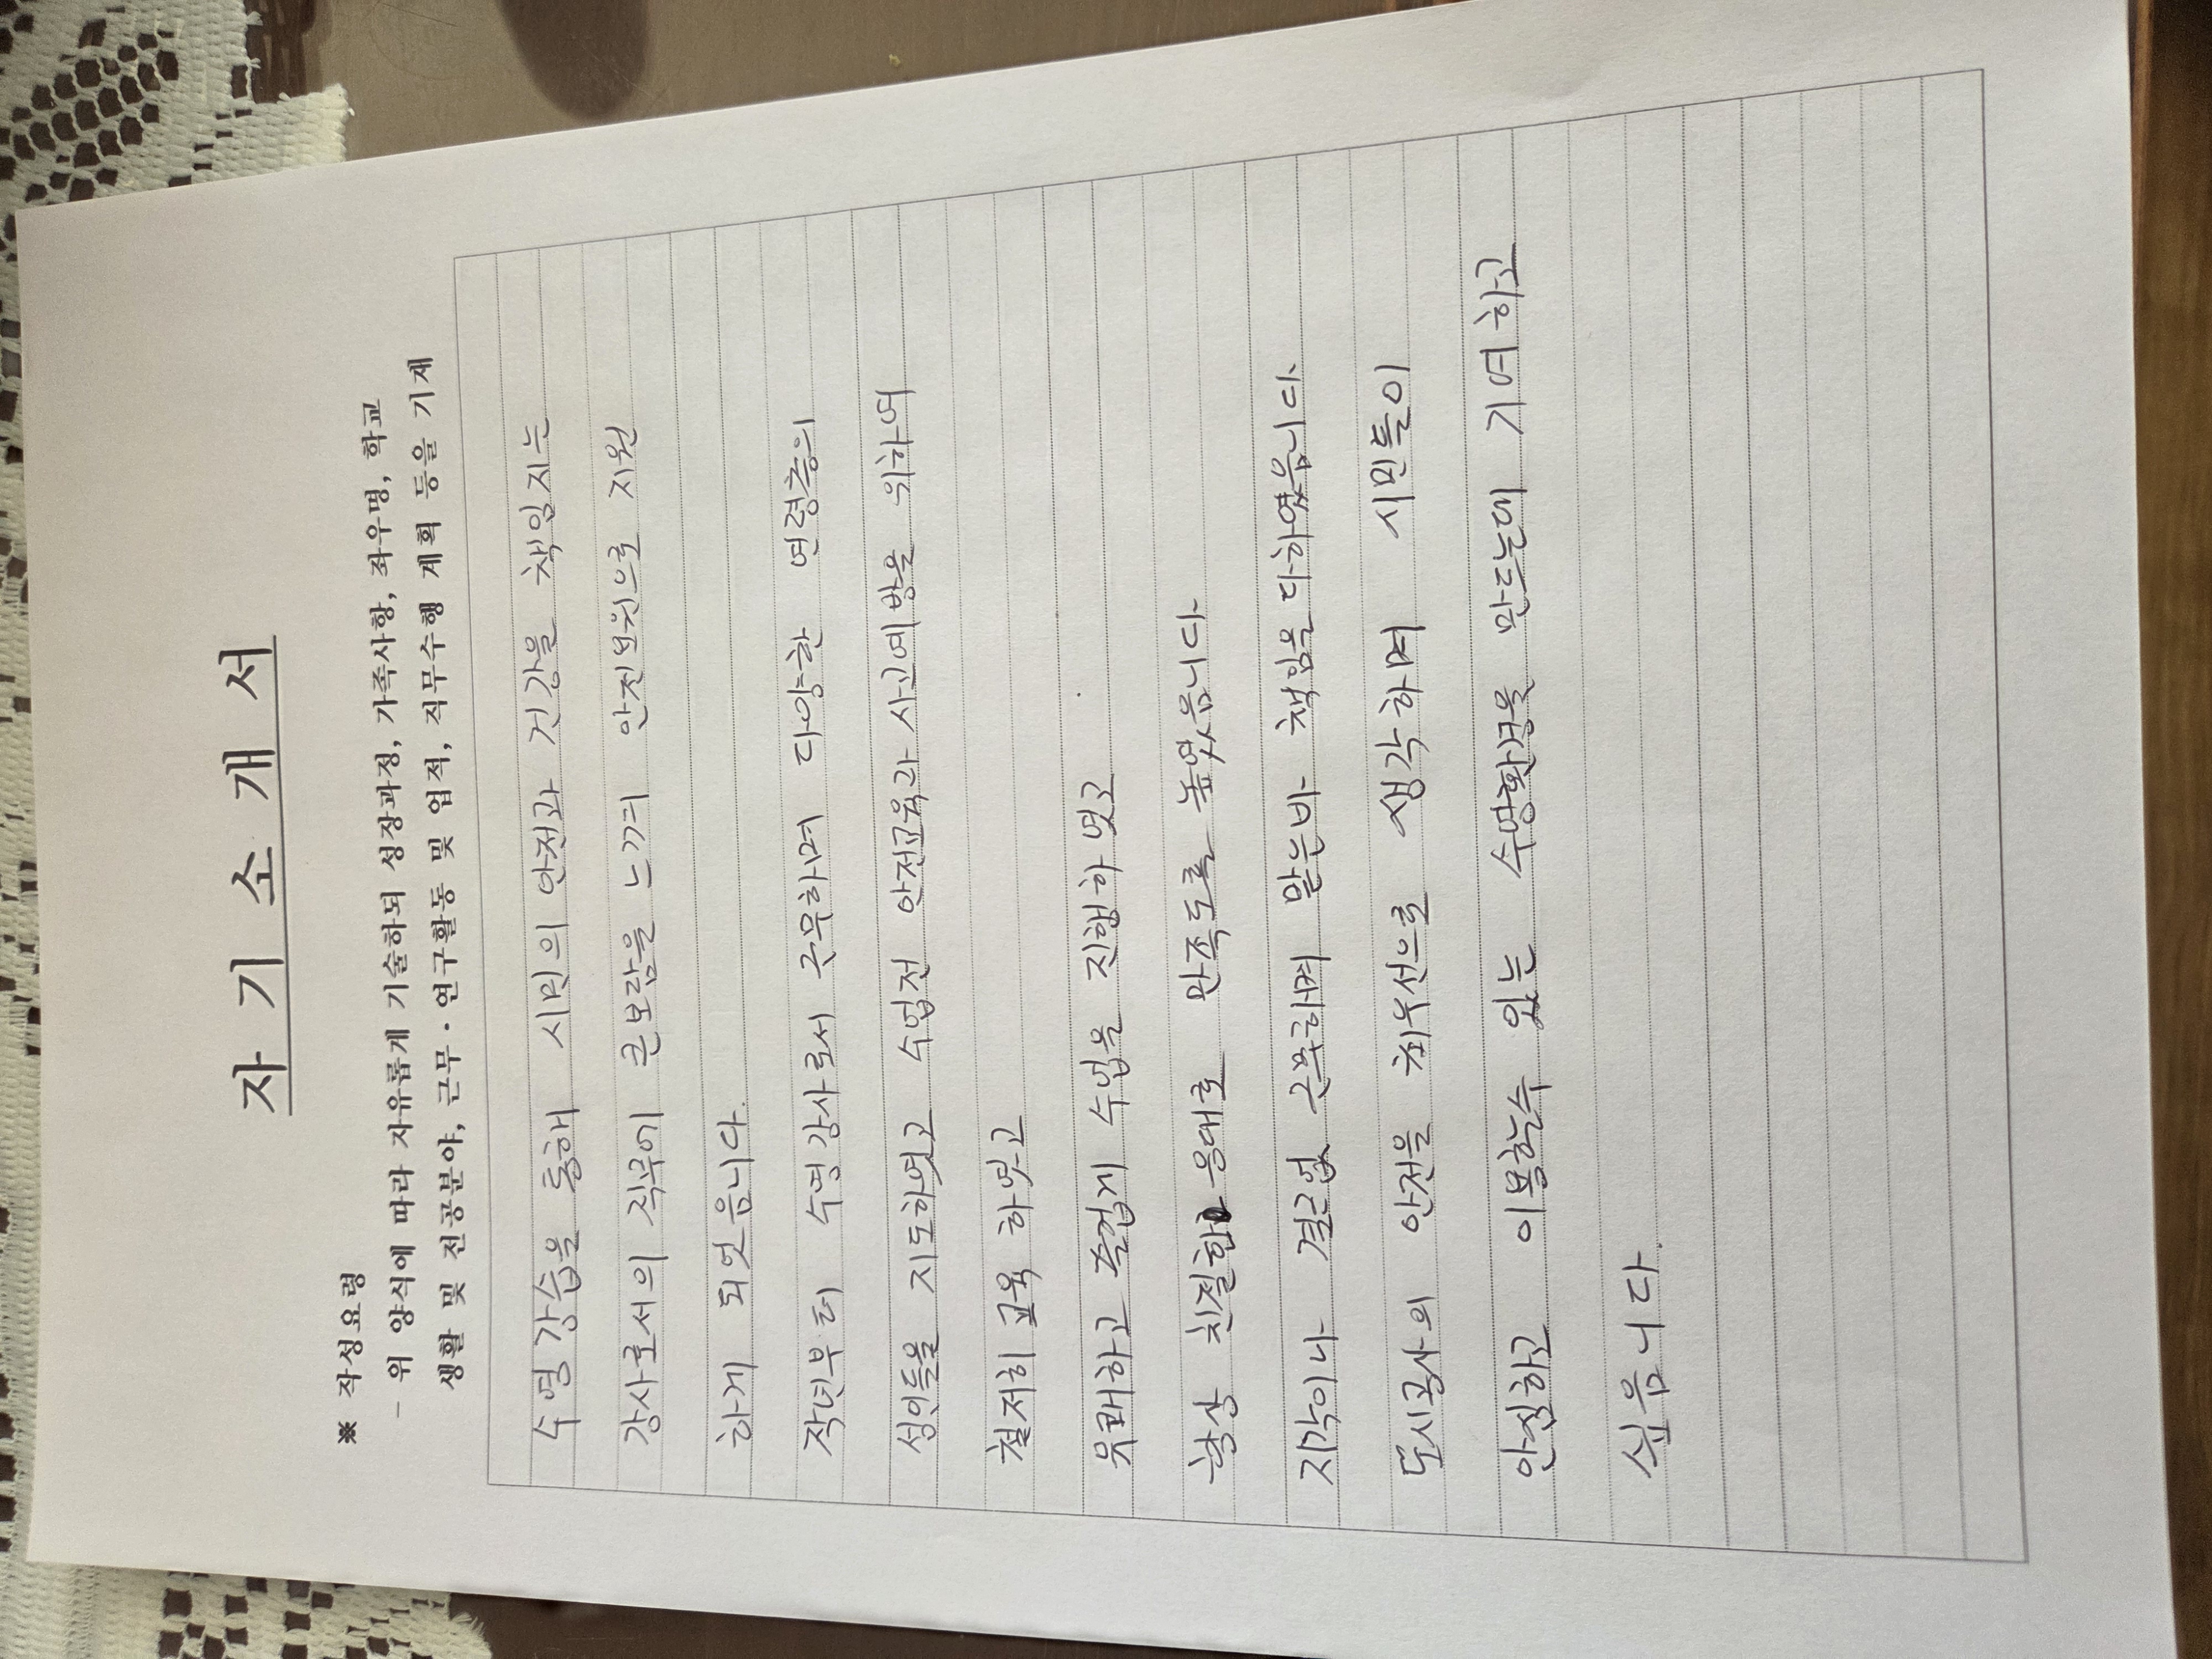 자 기 소 개 서
※ 작성요령
- 위 양식에 따라 자유롭게 기술하되 성장과정, 가족사항, 좌우명, 학교
생활 및 전공분야, 근무·연구활동 및 업적, 직무수행 계획 등을 기재
수영강습을 통해 시민의 안전과 건강을 책임지는
강사로서의 직무에 큰보람을 느껴 안전요원으로 지원
하게 되엇읍니다.
작년부터 수영강사로서 근무하며 다양한 연령층의
성인들을 지도하엿고 수업전 안전교육과 사고예방을 위하여
철저히 교육 하엿고
유쾌하고 즐겁게 수업을 진행하엿고
항상 친절한 응대로 만족도를 높였읍니다
지각이나 결근없 근무하며 맡은바 책임을 다하였읍니다
도시공사의 안전을 최우선으로 생각하며 시민들이
안심하고 이용할수 있는 수영환경을 만드는데 기여하고
십읍니다.